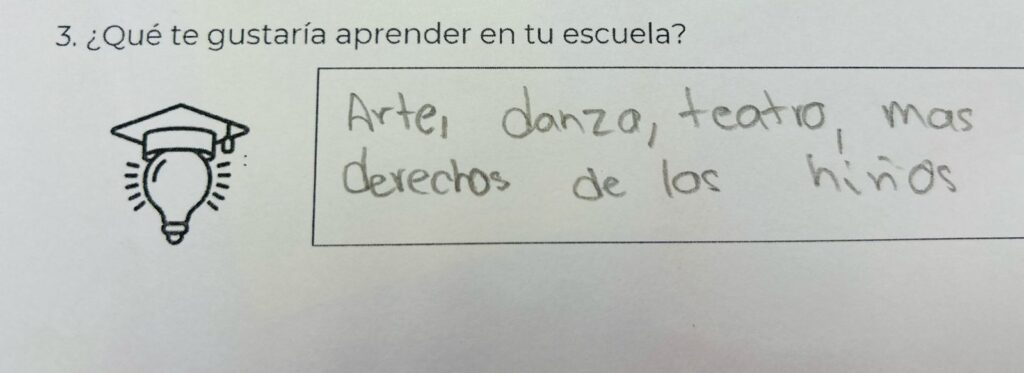 3. ¿Qué te gustaría aprender en tu escuela?
Arte, danza, teatro, mas
derechos de los niños